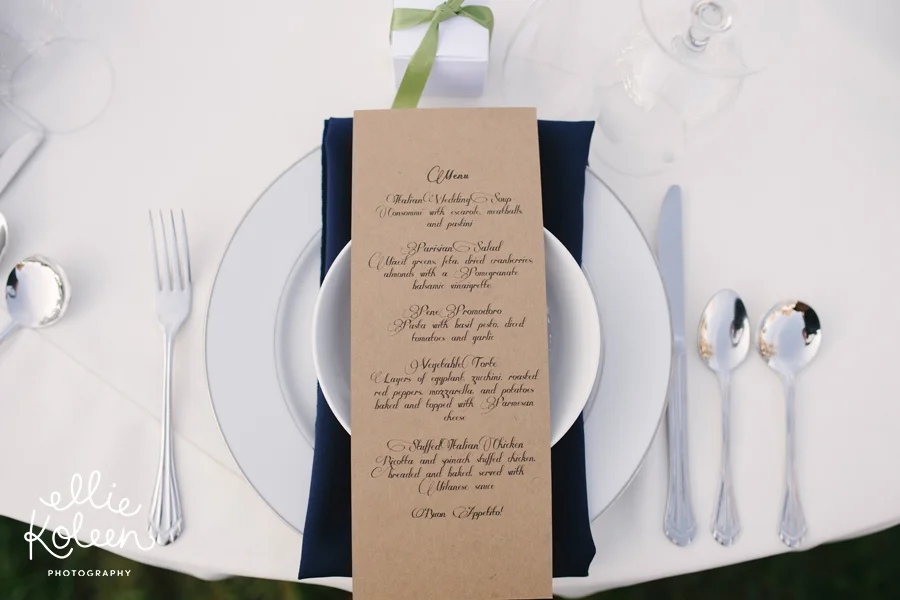 Menu
Italian Wedding Soup
Consommé with escarole, meatballs
and pastini
Parisian Salad
Mixed greens, feta, dried cranberries,
almonds with a Pomegranate
balsamic vinaigrette
Pene Pomodoro
Pasta with basil pesto, diced
tomatoes and garlic
Vegetable Torte
Layers of eggplant, zucchini, roasted
red peppers, mozzarella, and potatoes
baked and topped with Parmesan
cheese
Stuffed Italian Chicken
Ricotta and spinach stuffed chicken,
breaded and baked, served with
Milanese sauce
Buon Appetito!
ellie
Koleen
PHOTOGRAPHY